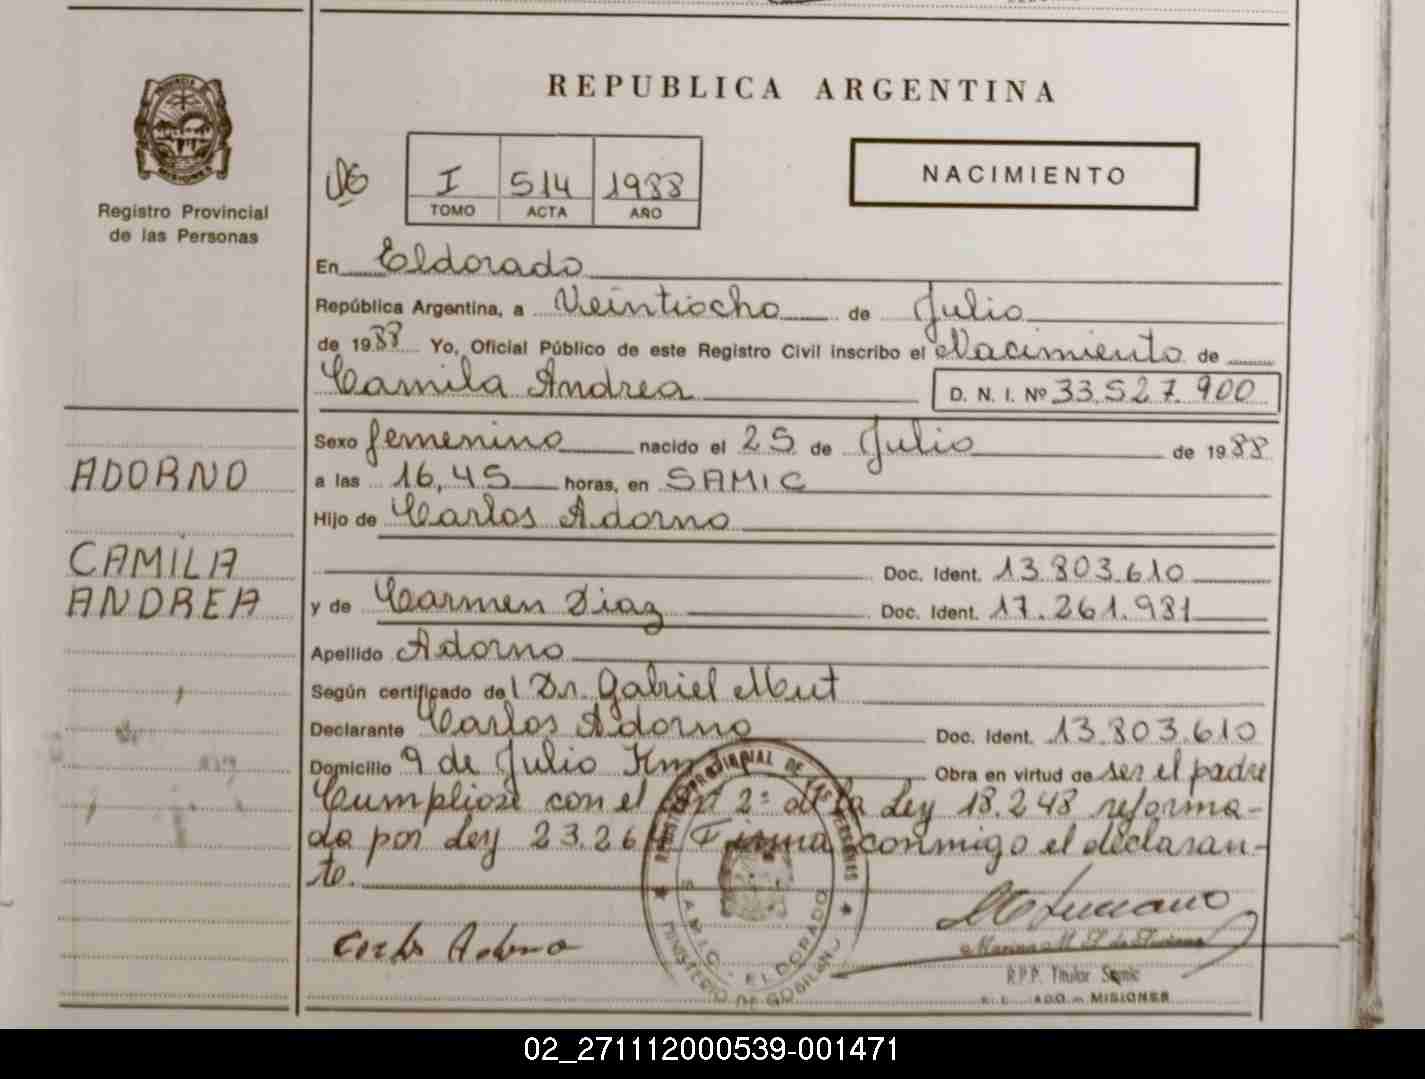 REPUBLICA ARGENTINA
NACIMIENTO
Registro Provincial
de las Personas
I 514 1988
TOMO ACTA AÑO
En Eldorado
República Argentina, a Veintiocho de Julio
de 1988 Yo, Oficial Público de este Registro Civil inscribo el Nacimiento de
Camila Andrea D. N. I. Nº 33.527.900
Sexo femenino nacido el 25 de Julio de 1988
ADORNO
a las 16,45 horas, en SAMIC
Hijo de Carlos Adorno
CAMILA
ANDREA
Doc. Ident. 13.803.610
y de Carmen Diaz Doc. Ident. 17.261.981
Apellido Adorno
Según certificado del Dr. Gabriel Mut
Declarante Carlos Adorno Doc. Ident. 13.803.610
Domicilio 9 de Julio Km Obra en virtud de ser el padre
Cumpliose con el Art 2º de la Ley 18.248 reforma-
da por Ley 23.26 Firma conmigo el declaran-
te.
Carlos Adorno
REGISTRO PROVINCIAL DE LAS PERSONAS
SAMIC - ELDORADO
MINISTERIO DE GOBIERNO
R.P.P. Titular Samic
ELDORADO - MISIONES
02_271112000539-001471